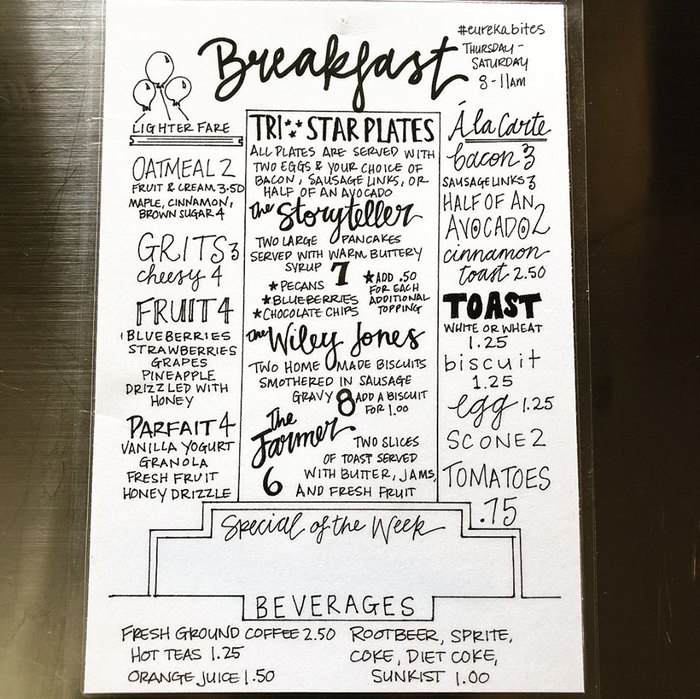 Breakfast
#eurekabites
THURSDAY-
SATURDAY
8-11AM
LIGHTER FARE
OATMEAL 2
FRUIT & CREAM 3.50
MAPLE, CINNAMON,
BROWN SUGAR 4
GRITS 3
cheesy 4
FRUIT 4
BLUEBERRIES
STRAWBERRIES
GRAPES
PINEAPPLE
DRIZZLED WITH
HONEY
PARFAIT 4
VANILLA YOGURT
GRANOLA
FRESH FRUIT
HONEY DRIZZLE
TRI STAR PLATES
ALL PLATES ARE SERVED WITH
TWO EGGS & YOUR CHOICE OF
BACON, SAUSAGE LINKS, OR
HALF OF AN AVOCADO
The Storyteller
TWO LARGE PANCAKES
SERVED WITH WARM BUTTERY
SYRUP 7
★PECANS
★BLUEBERRIES
★CHOCOLATE CHIPS
★ADD .50
FOR EACH
ADDITIONAL
TOPPING
The Wiley Jones
TWO HOME MADE BISCUITS
SMOTHERED IN SAUSAGE
GRAVY 8 ADD A BISCUIT
FOR 1.00
The
Farmer
6
TWO SLICES
OF TOAST SERVED
WITH BUTTER, JAMS,
AND FRESH FRUIT
Á la Carte
bacon 3
SAUSAGE LINKS 3
HALF OF AN
AVOCADO 2
cinnamon
toast 2.50
TOAST
WHITE OR WHEAT
1.25
biscuit
1.25
egg 1.25
SCONE 2
TOMATOES
.75
Special of the Week
BEVERAGES
FRESH GROUND COFFEE 2.50
HOT TEAS 1.25
ORANGE JUICE 1.50
ROOTBEER, SPRITE,
COKE, DIET COKE,
SUNKIST 1.00